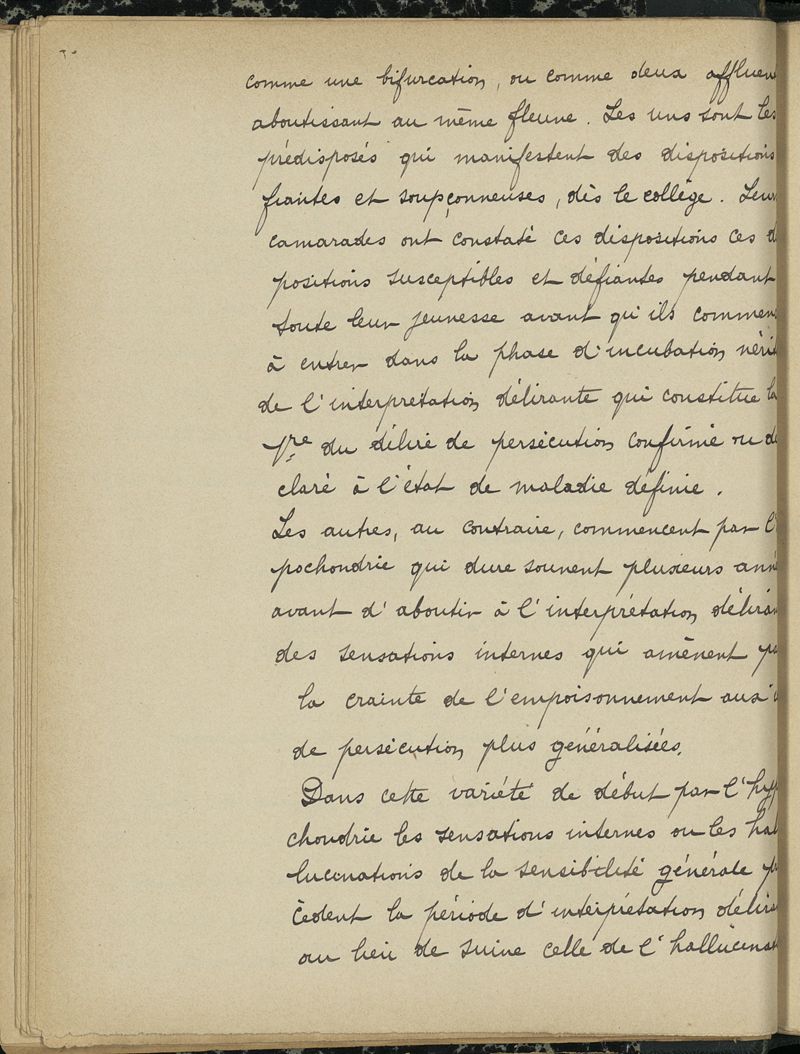 comme une bifurcation, ou comme deux affluen
aboutissant au même fleuve. Les uns sont les
prédisposés qui manifestent des dispositions
fiantes et soupçonneuses, dès le collège. Leur
camarades ont constaté ces dispositions ces d
positions susceptibles et défiantes pendant
toute leur jeunesse avant qu'ils commen
à entrer dans la phase d'incubation vérit
de l'interprétation délirante qui constitue la
1re du délire de persécution confirmé ou dé
claré à l'état de maladie définie.
Les autres, au contraire, commencent par l'
pochondrie qui dure souvent plusieurs ann
avant d'aboutir à l'interprétation déliran
des sensations internes qui amènent p
la crainte de l'empoisonnement aux i
de persécution plus généralisées.
Dans cette variété de début par l'hyp
chondrie les sensations internes ou les hal
lucinations de la sensibilité générale p
cèdent la période d'interprétation délira
au lieu de suivre celle de l'hallucinat